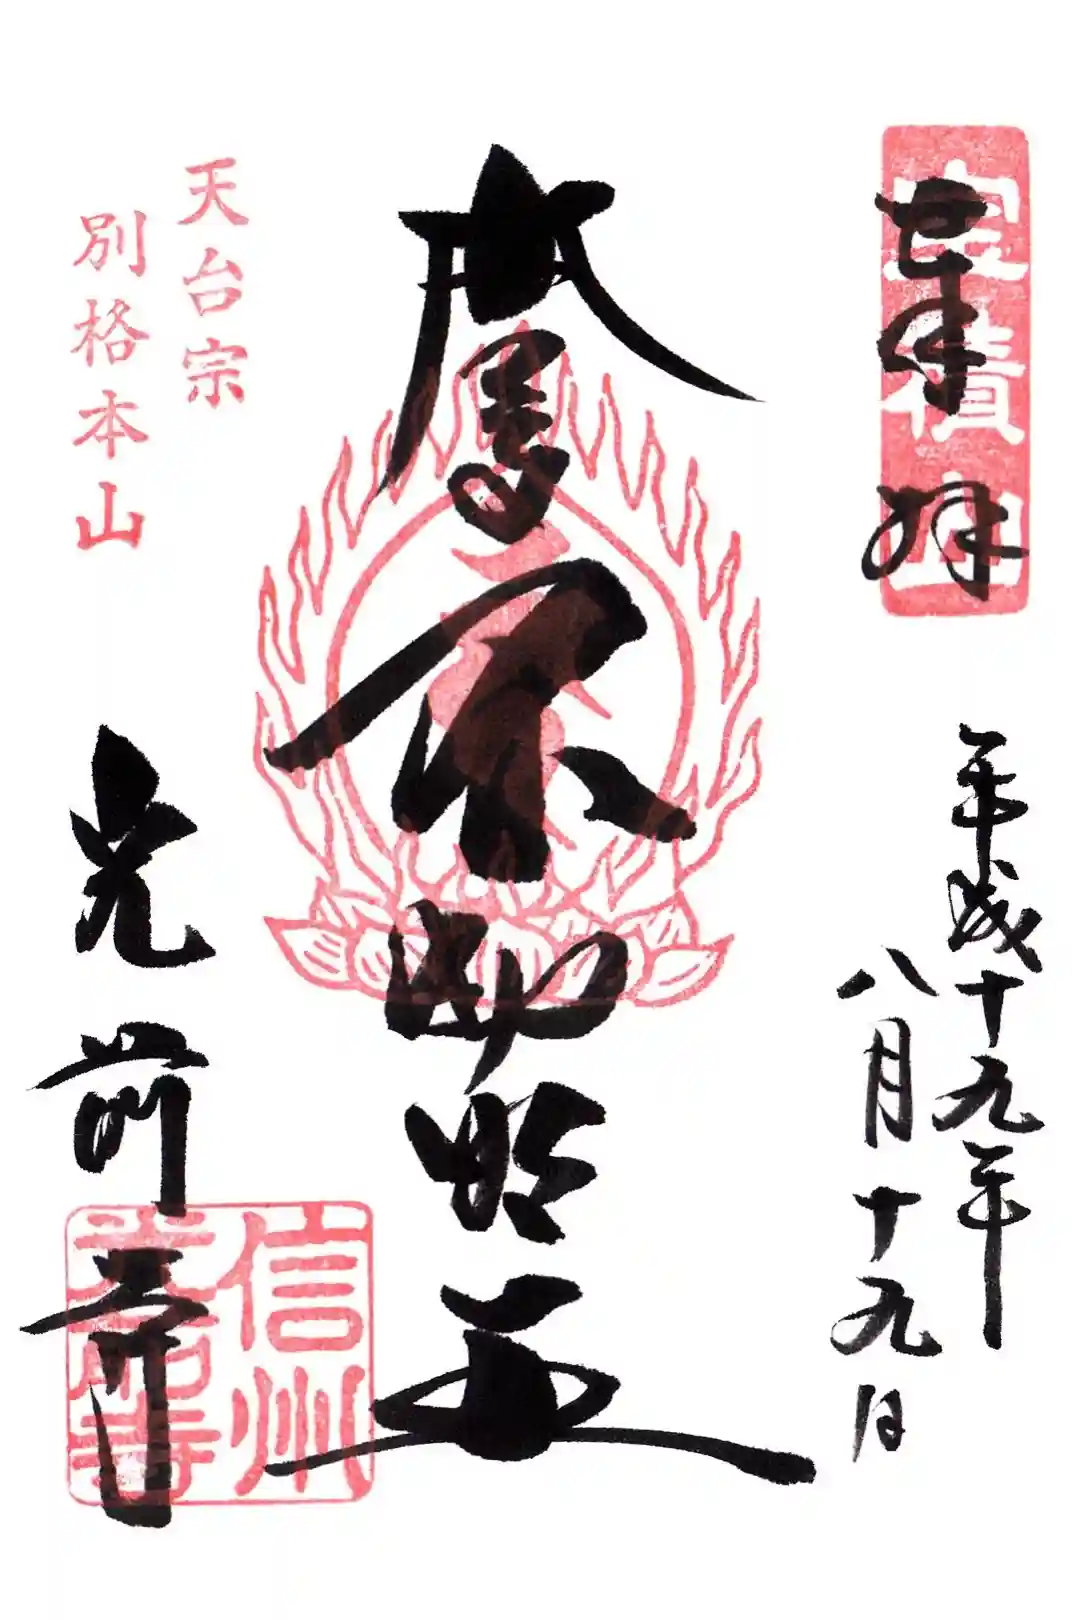 宝積山
奉拝
平成十九年
八月十九日
不動明王
天台宗
別格本山
光前寺
信州
光前寺